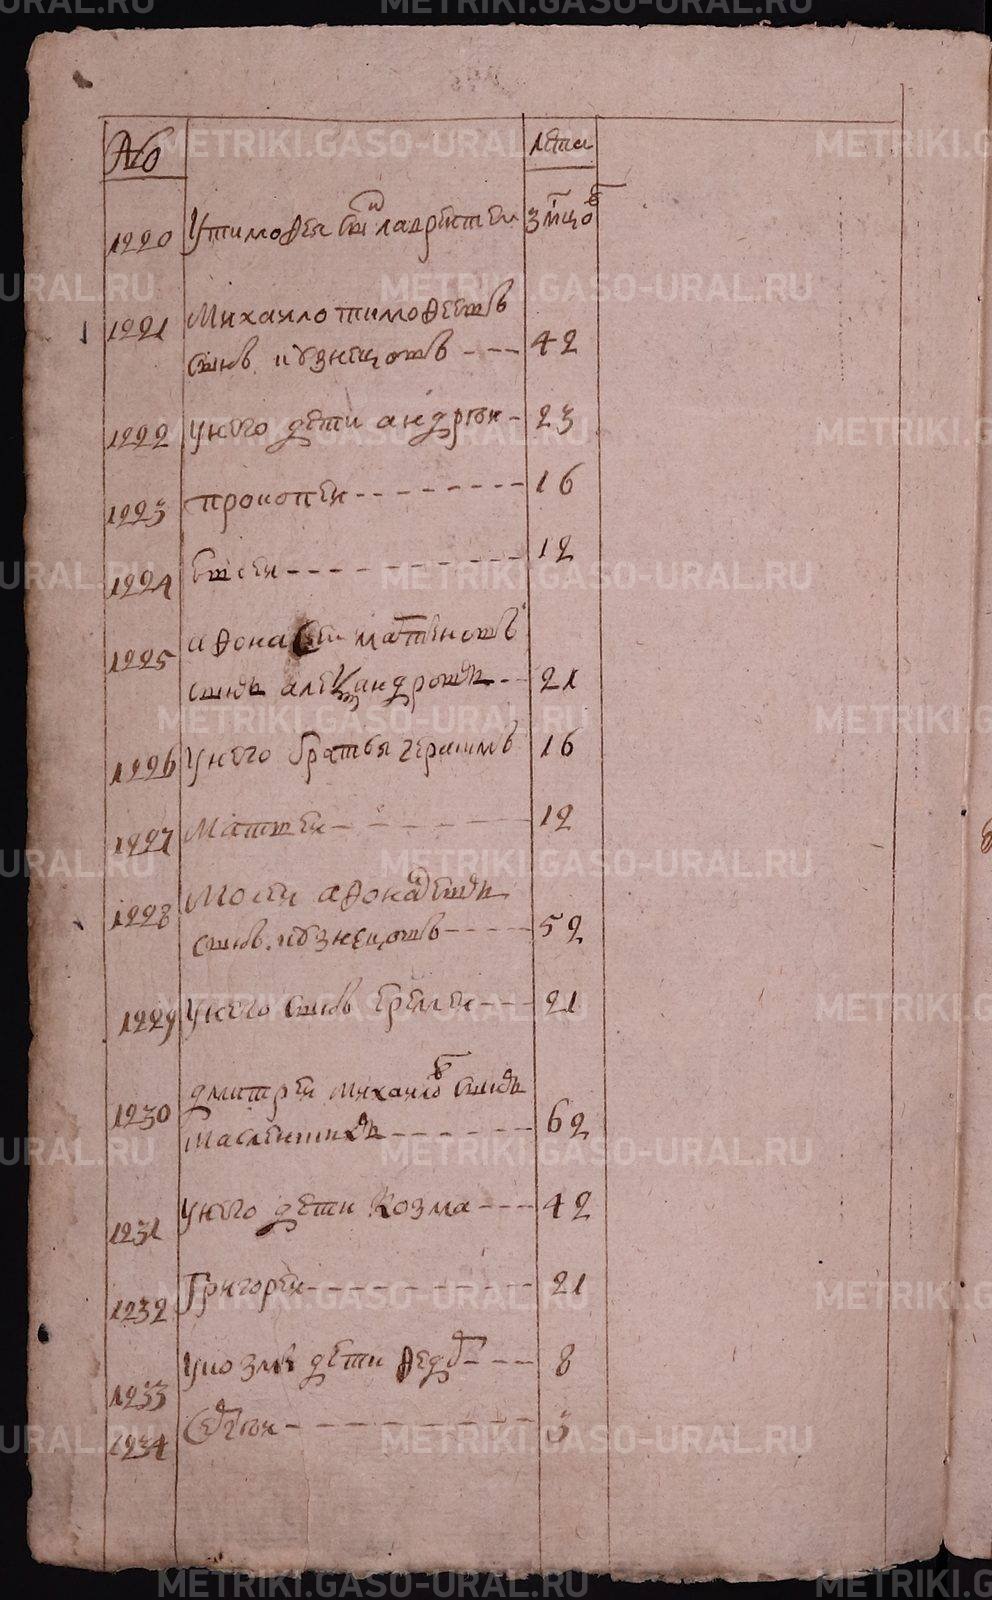 METRIKI.GASO-URAL.RU
№ лета
1220 У тимофея сын лаврентей 3 мцов
1221 Михаило тимофеевъ
сынъ кузнецовъ 42
1222 у него дети андрей 23
1223 прокопей 16
1224 12
1225 афонасей матвеевъ
сынъ александровъ 21
1226 у него братья герасимъ 16
1227 Матвей 12
1228 Мосей афонасьевъ
сынъ кузнецовъ 52
1229 у него сынъ еремей 21
1230 дмитрей михаиловъ сынъ
масленниковъ 62
1231 у него дети козма 42
1232 Григорей 21
1233 у козмы дети федоръ 8
1234 Сергей 3